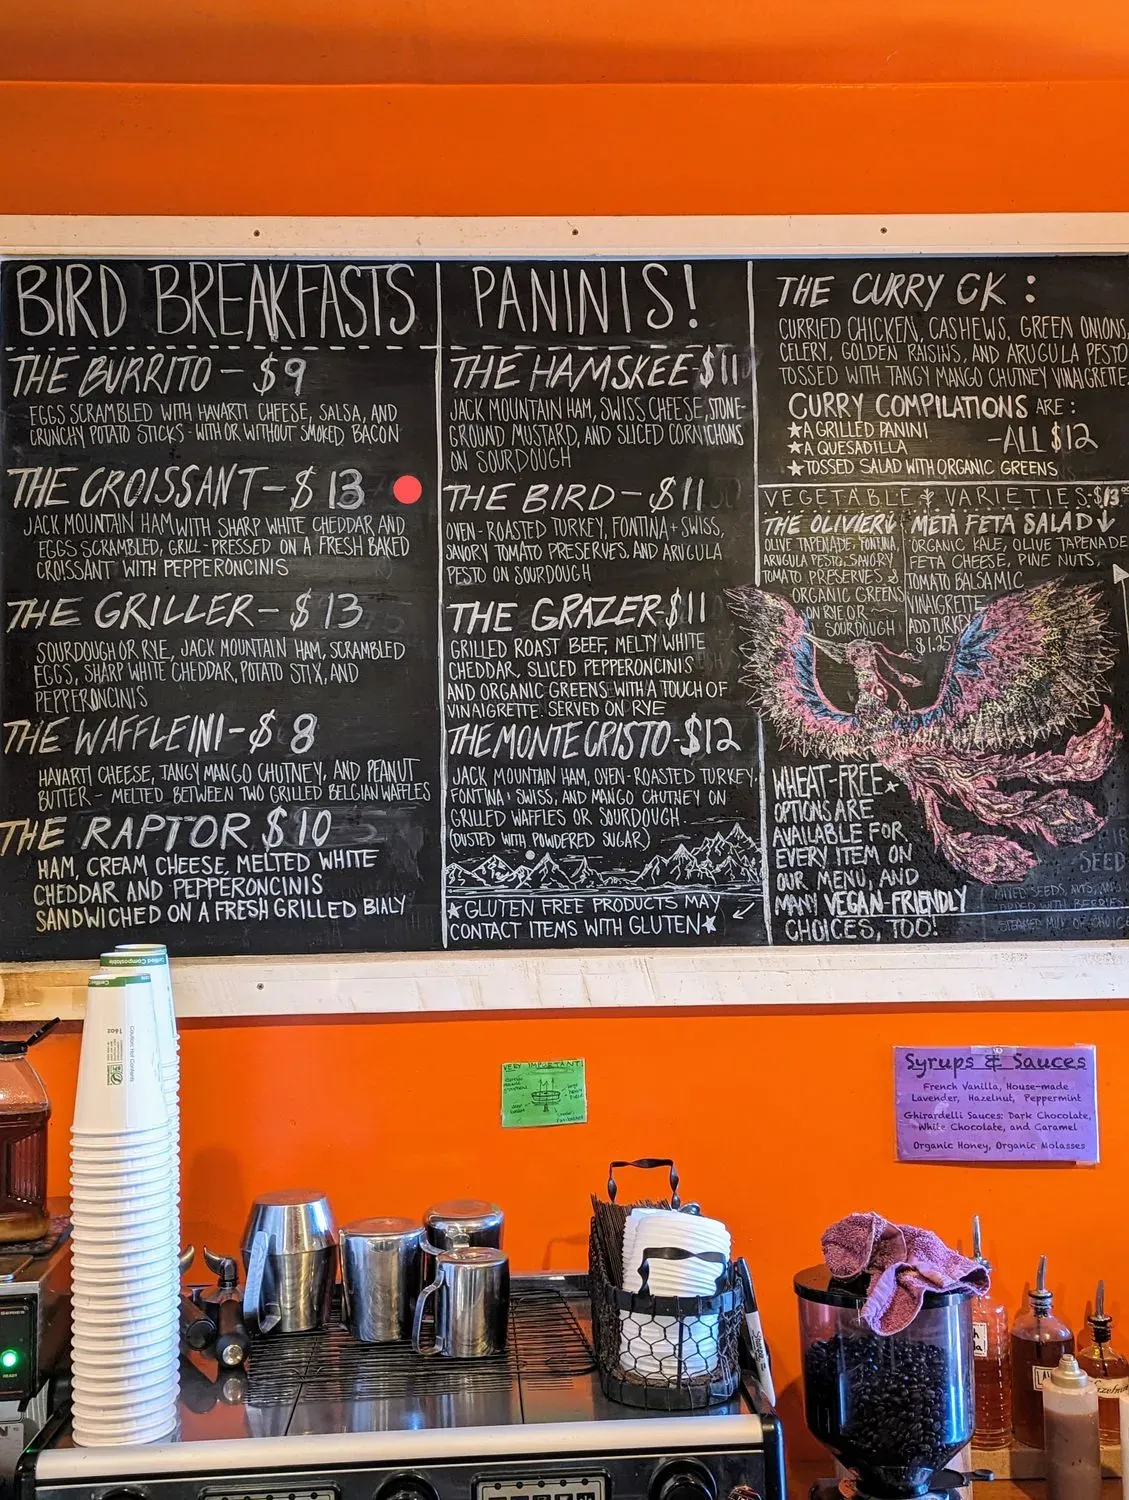 BIRD BREAKFASTS
THE BURRITO - $9
EGGS SCRAMBLED WITH HAVARTI CHEESE, SALSA, AND
CRUNCHY POTATO STICKS - WITH OR WITHOUT SMOKED BACON
THE CROISSANT - $13
JACK MOUNTAIN HAM WITH SHARP WHITE CHEDDAR AND
EGGS SCRAMBLED, GRILL-PRESSED ON A FRESH BAKED
CROISSANT WITH PEPPERONCINIS
THE GRILLER - $13
SOURDOUGH OR RYE, JACK MOUNTAIN HAM, SCRAMBLED
EGGS, SHARP WHITE CHEDDAR, POTATO STIX, AND
PEPPERONCINIS
THE WAFFLEINI - $8
HAVARTI CHEESE, TANGY MANGO CHUTNEY, AND PEANUT
BUTTER - MELTED BETWEEN TWO GRILLED BELGIAN WAFFLES
THE RAPTOR $10
HAM, CREAM CHEESE, MELTED WHITE
CHEDDAR AND PEPPERONCINIS
SANDWICHED ON A FRESH GRILLED BIALY
PANINIS!
THE HAMSKEE - $11
JACK MOUNTAIN HAM, SWISS CHEESE, STONE-
GROUND MUSTARD, AND SLICED CORNICHONS
ON SOURDOUGH
THE BIRD - $11
OVEN-ROASTED TURKEY, FONTINA + SWISS,
SAVORY TOMATO PRESERVES, AND ARUGULA
PESTO ON SOURDOUGH
THE GRAZER - $11
GRILLED ROAST BEEF, MELTY WHITE
CHEDDAR, SLICED PEPPERONCINIS
AND ORGANIC GREENS WITH A TOUCH OF
VINAIGRETTE. SERVED ON RYE
THE MONTE CRISTO - $12
JACK MOUNTAIN HAM, OVEN-ROASTED TURKEY,
FONTINA + SWISS, AND MANGO CHUTNEY ON
GRILLED WAFFLES OR SOURDOUGH.
(DUSTED WITH POWDERED SUGAR)
★ GLUTEN FREE PRODUCTS MAY
CONTACT ITEMS WITH GLUTEN ★
THE CURRY CK :
CURRIED CHICKEN, CASHEWS, GREEN ONIONS,
CELERY, GOLDEN RAISINS, AND ARUGULA PESTO
TOSSED WITH TANGY MANGO CHUTNEY VINAIGRETTE.
CURRY COMPILATIONS ARE :
★ A GRILLED PANINI
★ A QUESADILLA
- ALL $12
★ TOSSED SALAD WITH ORGANIC GREENS
VEGETABLE & VARIETIES - $13
THE OLIVIERI
OLIVE TAPENADE, FONTINA,
ARUGULA PESTO, SAVORY
TOMATO PRESERVES &
ORGANIC GREENS
ON RYE OR
SOURDOUGH
META FETA SALAD ↓
ORGANIC KALE, OLIVE TAPENADE
FETA CHEESE, PINE NUTS,
TOMATO BALSAMIC
VINAIGRETTE
ADD TURKEY
$1.25
WHEAT-FREE ★
OPTIONS ARE
AVAILABLE FOR
EVERY ITEM ON
OUR MENU, AND
MANY VEGAN-FRIENDLY
CHOICES, TOO!
SEED
VERY IMPORTANT!
Syrups & Sauces
French Vanilla, House-made
Lavender, Hazelnut, Peppermint
Ghirardelli Sauces: Dark Chocolate,
White Chocolate, and Caramel
Organic Honey, Organic Molasses
16oz
READY